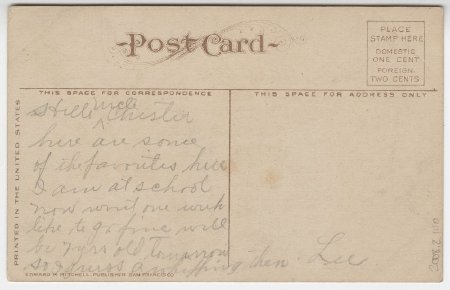 Post Card
PLACE
STAMP HERE
DOMESTIC
ONE CENT
FOREIGN
TWO CENTS
THIS SPACE FOR CORRESPONDENCE
THIS SPACE FOR ADDRESS ONLY
PRINTED IN THE UNITED STATES
uncle
Hello Chester
here are some
of the favorites here
I am at school
now one week
like to go fine will
be 7 yrs old tomorrow
so guess a whipping then. Lee
EDWARD H. MITCHELL, PUBLISHER, SAN FRANCISCO